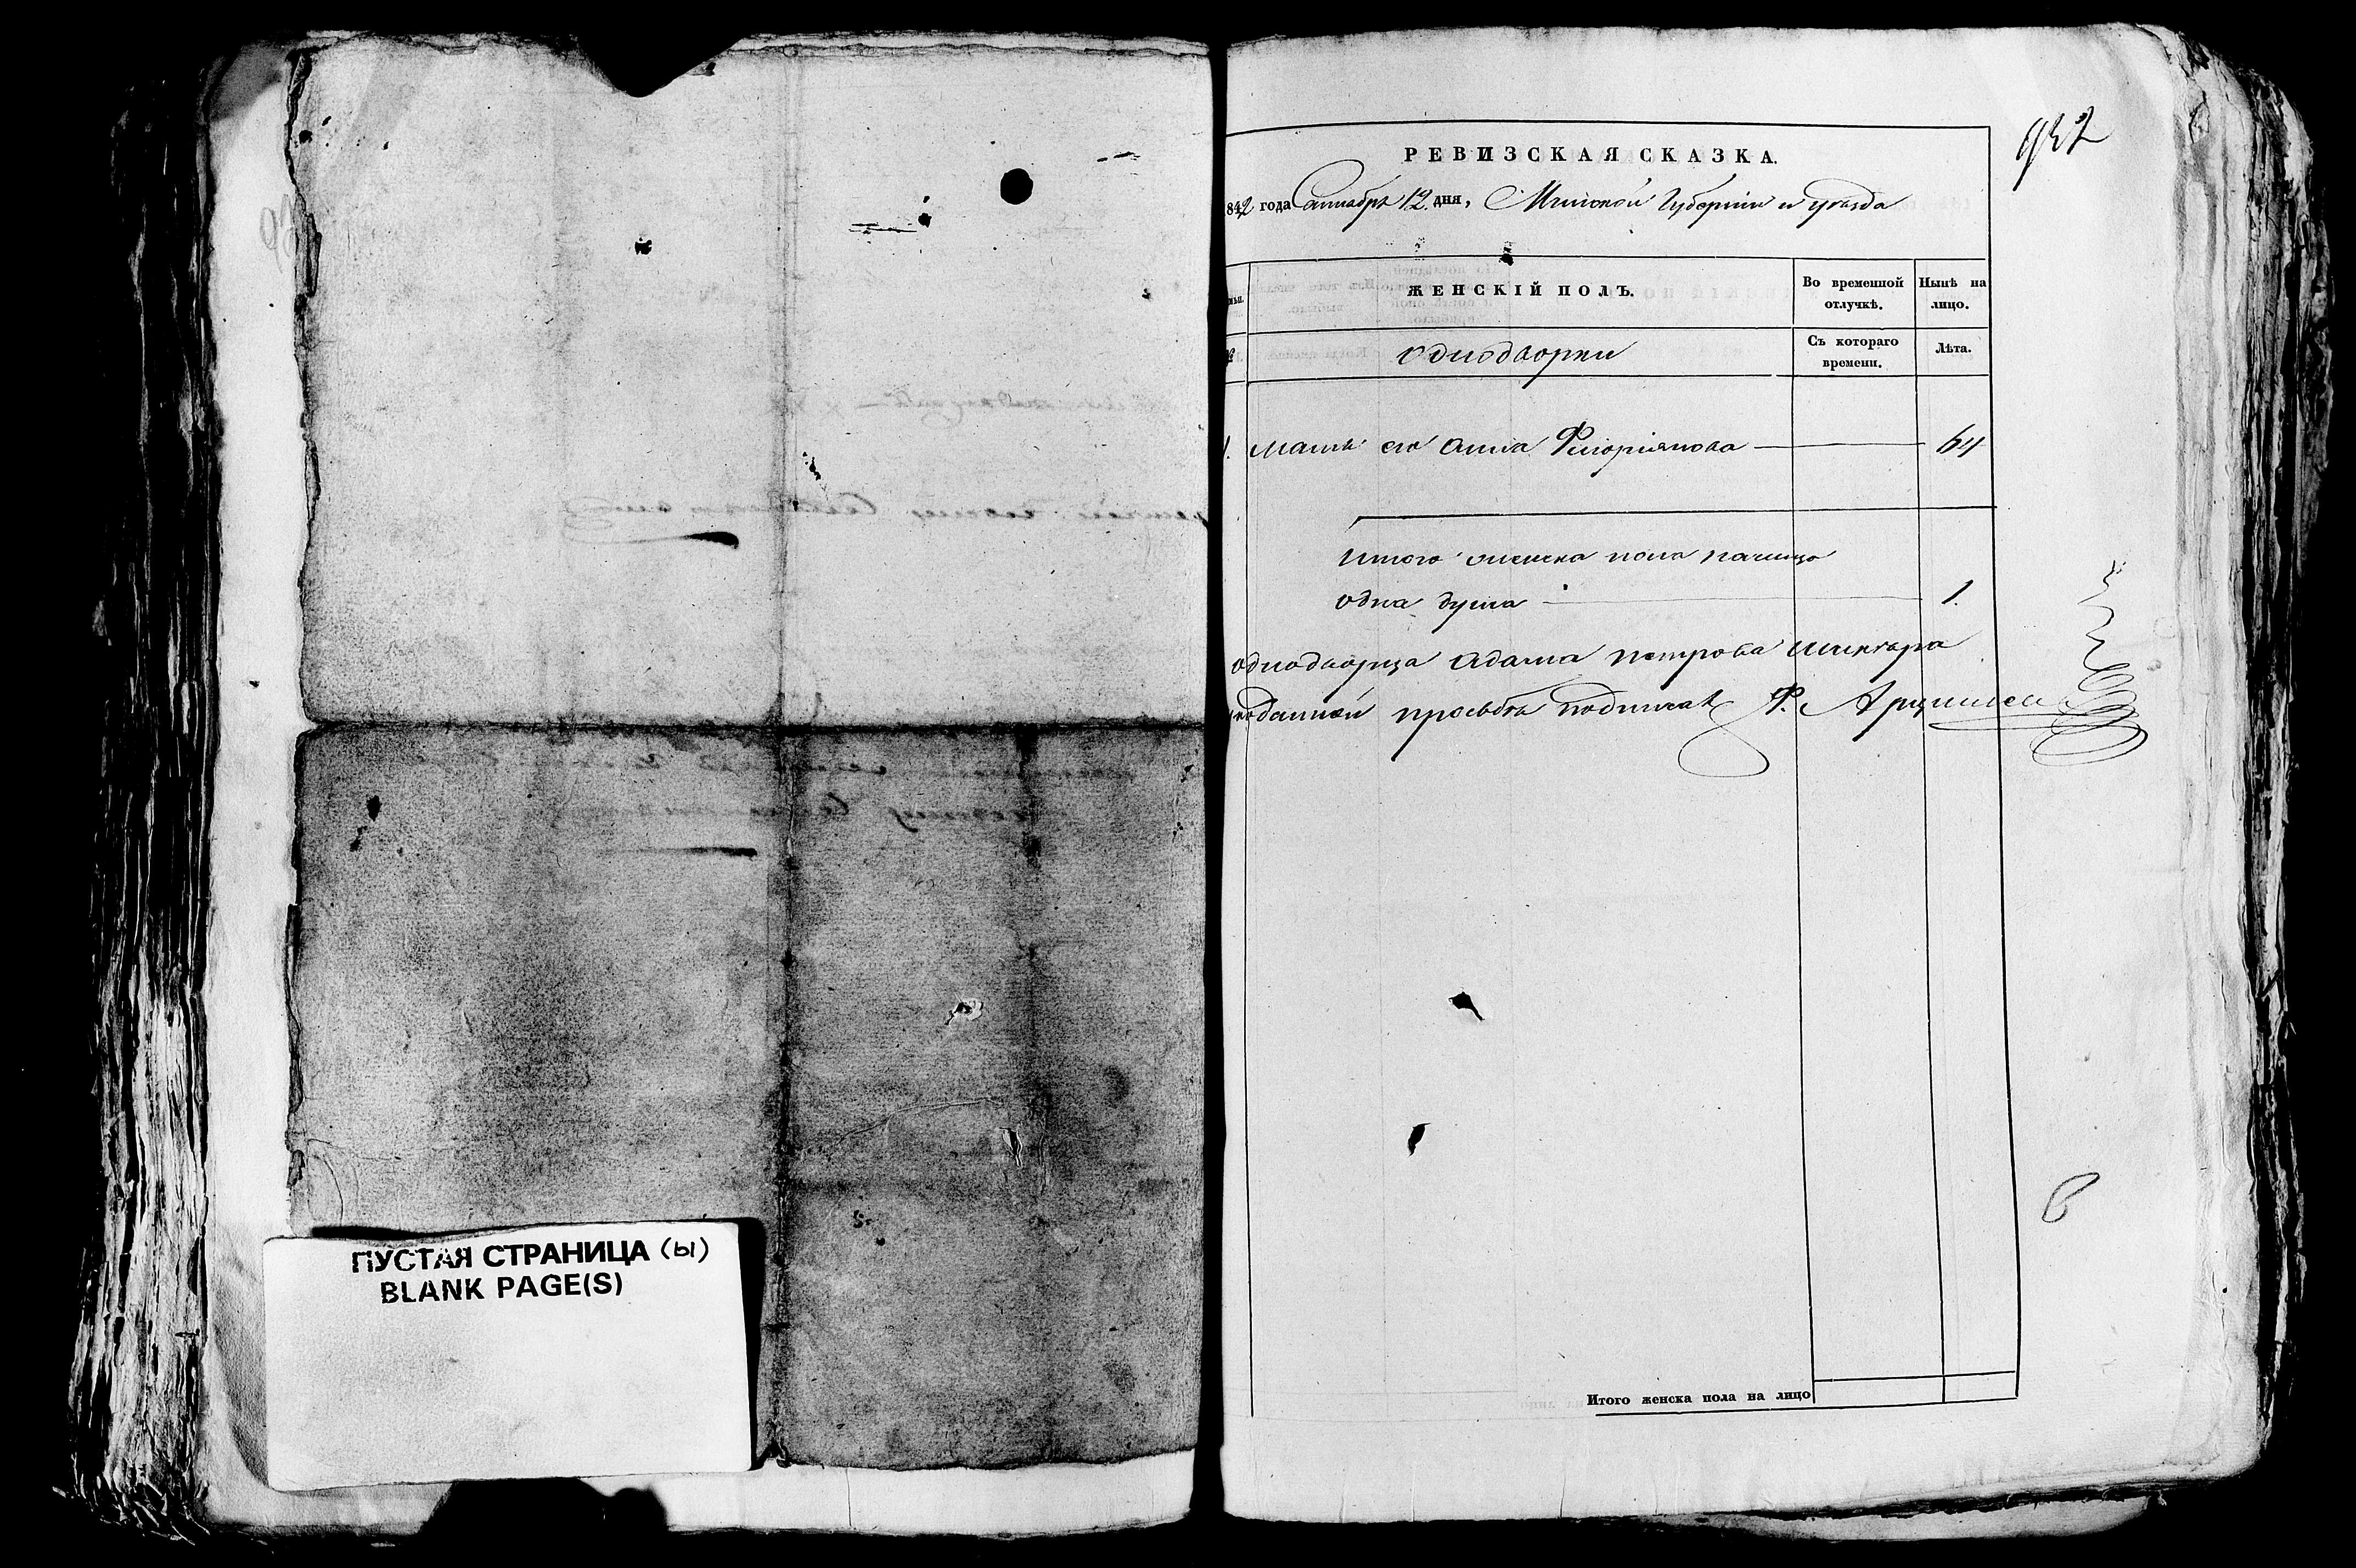 ПУСТАЯ СТРАНИЦА (ы)
BLANK PAGE(S)
932
РЕВИЗСКАЯ СКАЗКА.
842 года Сентября 12 дня, Минской Губернии и уезда
ЖЕНСКІЙ ПОЛЪ.
Во временной отлучкѣ.
Нынѣ на лицо.
Однодворки
Съ котораго времени.
Лѣта.
1. Мать его Анна Флоріянова — 64
Итого женска пола налицо
одна душа — 1.
однодворца Адама Петрова
просьбѣ подписалъ Ф.
Итого женска пола на лицо